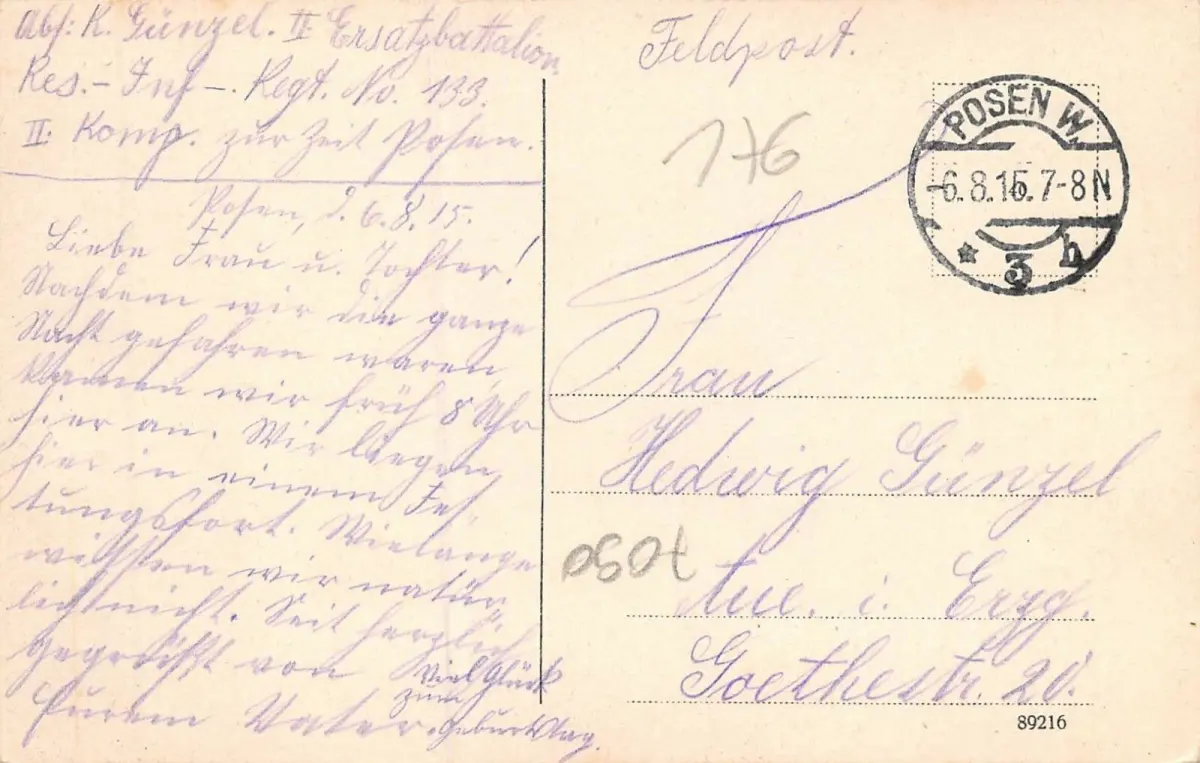 Abs: K. Günzel. II Ersatzbattalion
Res.- Inf-. Regt. No. 133.
II. Komp. zur Zeit Posen.
Posen, d. 6.8.15.
Liebe Frau u. Tochter!
Nachdem wir die ganze
Nacht gefahren waren,
kamen wir früh 8 Uhr
hier an. Wir liegen
hier in einem Fes-
tungsfort. Wielange
wissen wir natür-
lich nicht. Seit herzlich
gegrüßt von
Eurem Vater.
Viel Glück
zum
Geburtstag.
Feldpost.
176
POSEN W.
-6.8.15.7-8N
* 3 b
Frau
Hedwig Günzel
Aue. i. Erzg.
Goethestr. 20.
89216